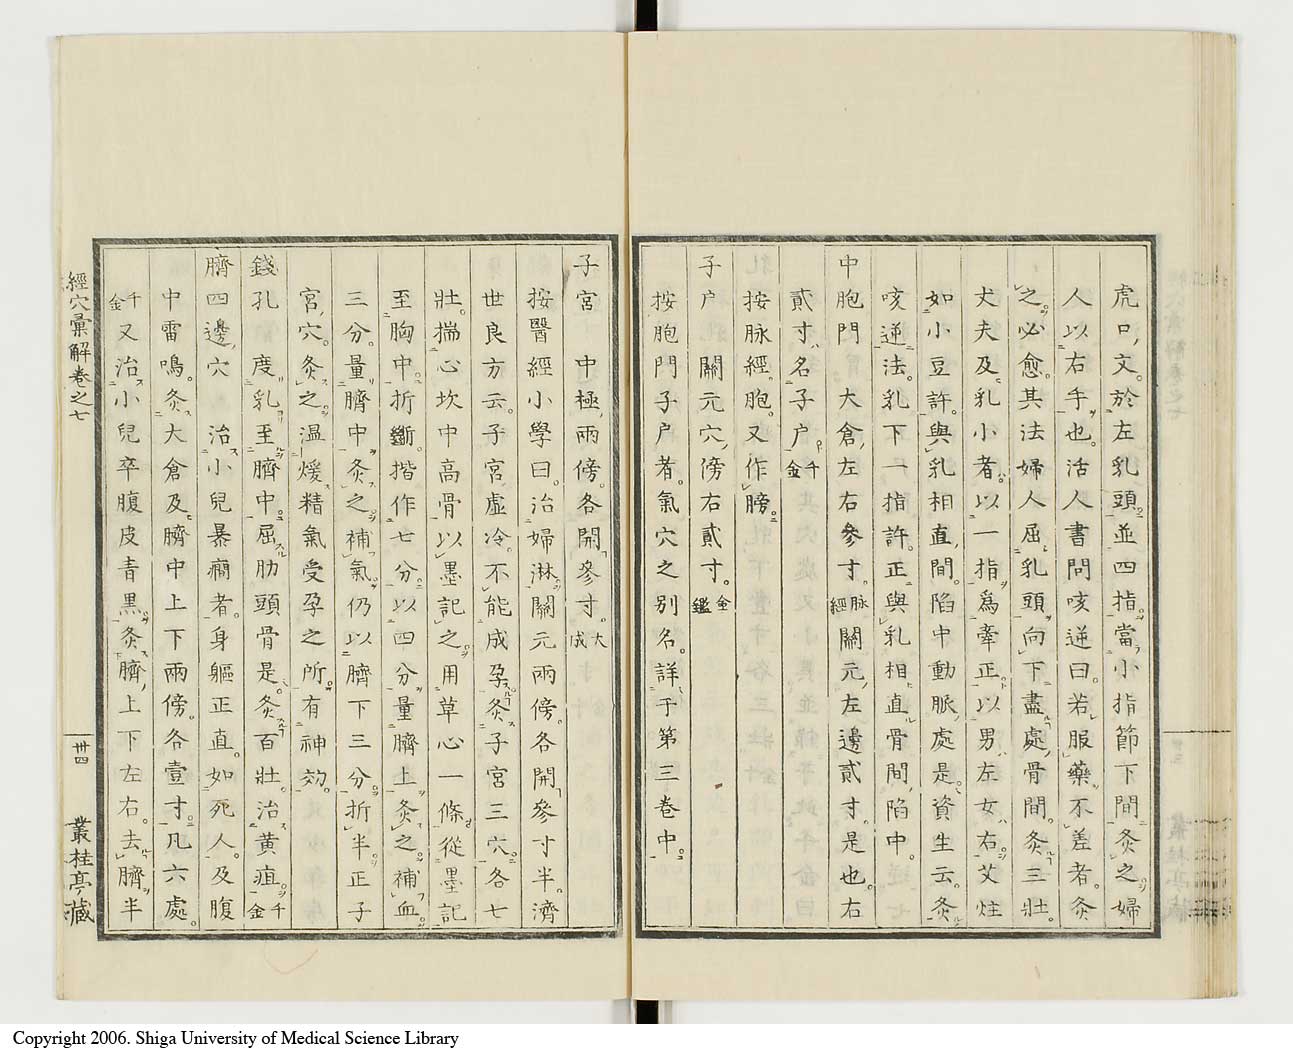 虎口、文。於左乳頭並四指。當小指節下間灸之。婦
人以右手也。活人書問咳逆曰。若服藥不差者。灸
之。必愈。其法婦人屈乳頭向下盡處、骨間。灸三壯。
丈夫及乳小者。以一指爲率正。以男左女右。艾炷
如小豆許。與乳相直、間。陷中動脈、處是。資生云。灸
咳逆法。乳下一指許。正與乳相直骨間、陷中。
中胞門 大倉、左右參寸。脉經關元、左邊貳寸。是也。右
貳寸。名子户。千金
按脉經。胞。又作膀。
子户 關元穴、傍右貳寸。金鑑
按胞門子户者。氣穴之別名。詳于第三卷中。
子宮 中極、兩傍。各開參寸。大成
按醫經小學曰。治婦淋。關元兩傍。各開參寸半。濟
世良方云。子宮、虛冷。不能成孕。灸子宮三穴。各七
壯。揣心坎中高骨。以墨記之。用草心一條。從墨記
至胸中。折斷。揩作七分。以四分量臍上。灸之。補血。
三分。量臍中。灸之。補氣。仍以臍下三分。折半。正子
宮、穴。灸之。温煖精氣受孕之所。有神効。
錢孔 度乳至臍中。屈肋頭骨是。灸百壯。治黄疸。千金
臍四邊、穴 治小兒暴癇者。身軀正直。如死人。及腹
中雷鳴。灸大倉及臍中上下兩傍。各壹寸。凡六處。
千金又治小兒卒腹皮青黒。灸臍、上下左右。去臍半
經穴彙解卷之七
卅四
叢桂亭藏
Copyright 2006. Shiga University of Medical Science Library